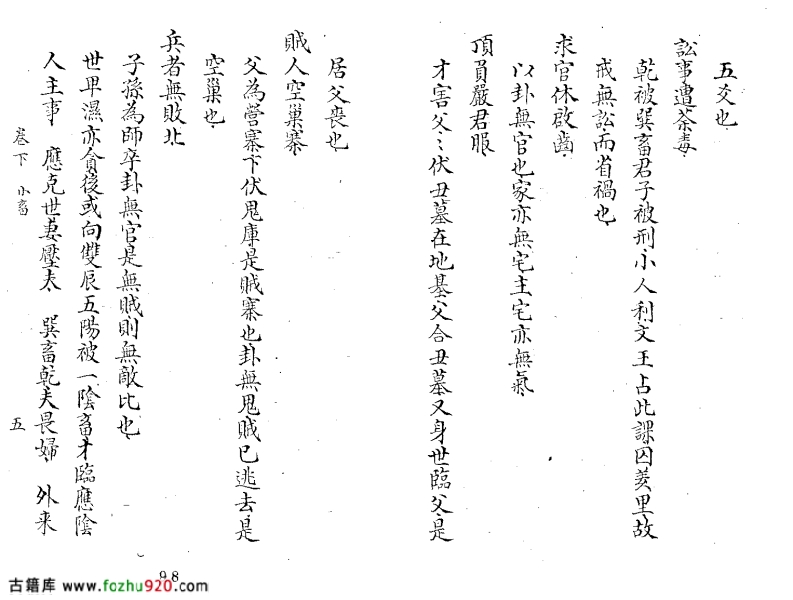 五爻也
訟事遭荼毒
乾被巽畜君子被刑小人利文王占此課囚羑里故
戒無訟而省禍也
求官休啟齒
以卦無官也家亦無宅主宅亦無氣
頂員嚴君服
才害父〻伏丑墓在地墓父合丑墓又身世臨父是
居父喪也
賊人空巢寨
父為營寨下伏鬼庫是賊寨也卦無鬼賊已逃去是
空巢也
兵者無敗北
子孫為師卒卦無官是無賊則無敵比也
世卑濕亦貪後或向雙辰五陽被一陰畜才臨應陰
人主事 應克世妻壓夫 巽畜乾夫畏婦 外来
卷下 小畜 五
98
古籍库 www.fozhu920.com